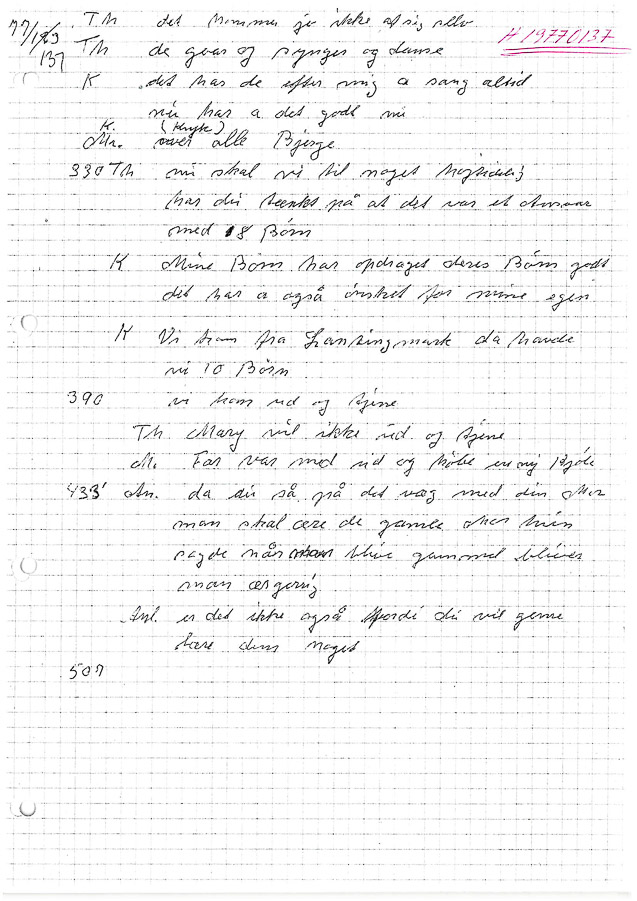 77/1963 Th det kommer jo ikke af sig selv
H 19770137
137 Th de gaar og synger og danse
K det har de efter mig a sang altid
nu har a det godt nu
K. (Kryk)
Mr. over alle Bjerge
330 Th nu skal vi til noget højtidelig
har du tænkt på at det var et Ansvar
med 18 Børn
K Mine Børn har opdraget deres Børn godt
det har a også ønsket for mine egen
K Vi kom fra Lansingmark da havde
vi 10 Børn
390 vi kom ud og tjene
Th. Mary vil ikke ud og tjene
M. Far var med ud og købe en ny Kjole
433 An. da du så på det væg med din Mor
man skal ære de gamle Mor hun
sagde når man blive gammel bliver
man ærgerrig
Anl. er det ikke også fordi du vil gerne
lære dem noget
507